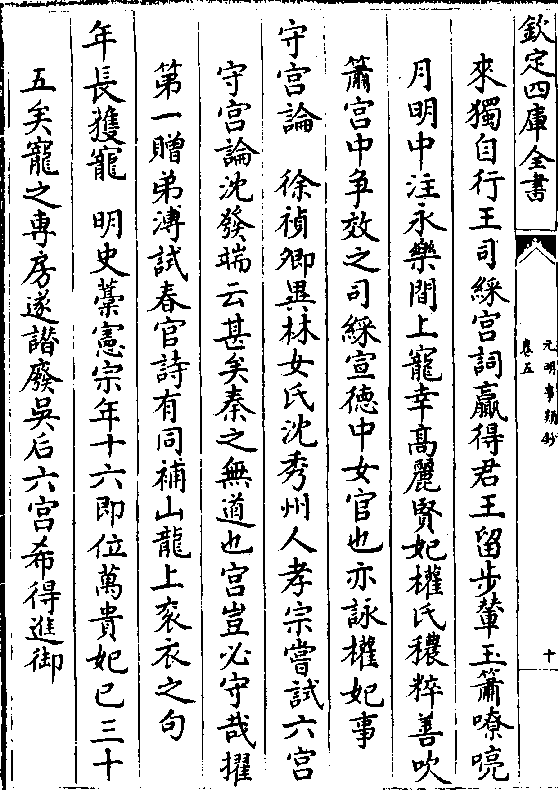 欽定四庫全書
元明事類鈔
卷五
十
來獨自行王司綵宫詞贏得君王留步輦玉簫嘹喨
月明中注永樂間上寵幸髙麗賢妃權氏穠粹善吹
簫宫中争效之司綵宣德中女官也亦詠權妃事
守宫論 徐禎卿異林女氏沈秀州人孝宗嘗試六宫
守宫論沈發端云甚矣秦之無道也宫豈必守哉擢
第一贈弟溥試春官詩有同補山龍上衮衣之句
年長獲寵 明史藁憲宗年十六即位萬貴妃已三十
五矣寵之專房遂譖廢吳后六宫希得進御